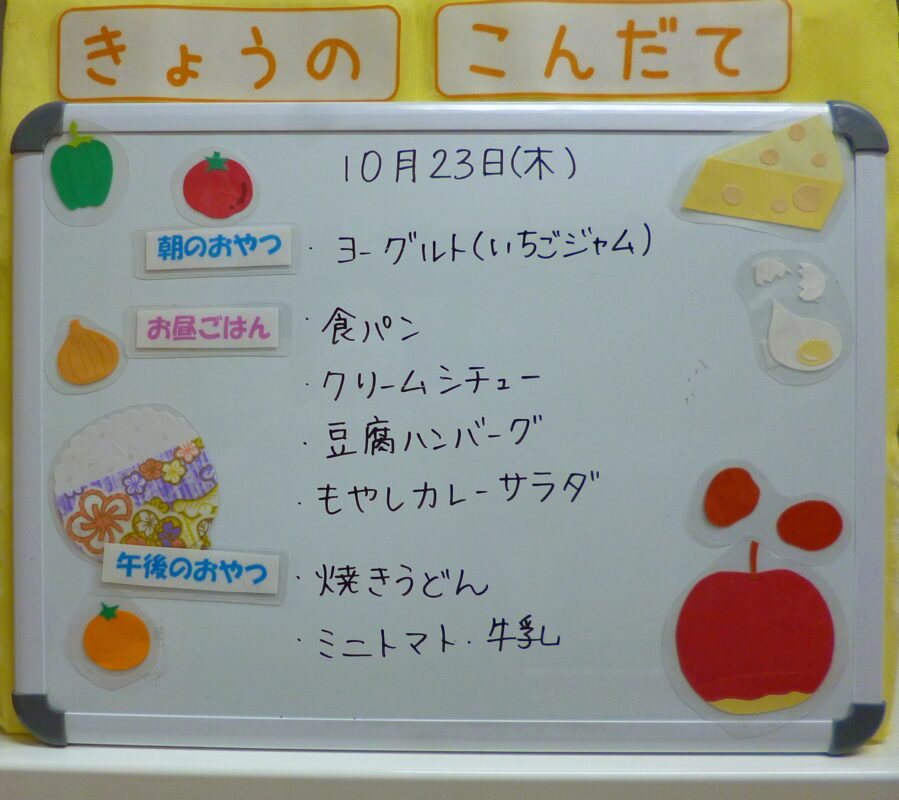 きょうの こんだて
10月23日(木)
朝のおやつ ・ ヨーグルト(いちごジャム)
お昼ごはん ・ 食パン
・ クリームシチュー
・ 豆腐ハンバーグ
・ もやしカレーサラダ
午後のおやつ ・ 焼きうどん
・ ミニトマト・牛乳